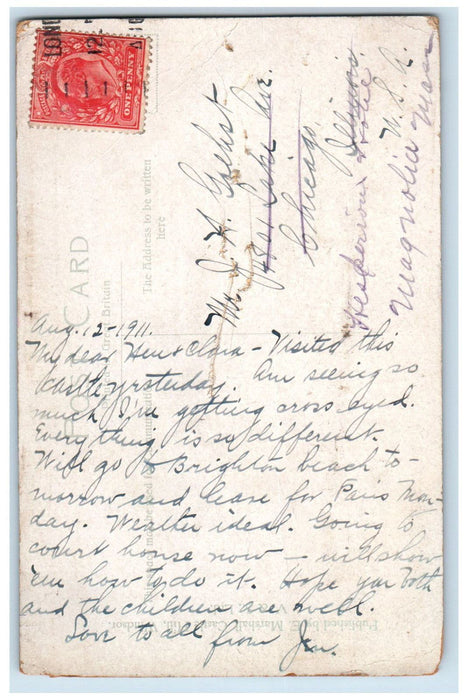 LONDON
ONE PENNY
POST CARD
Great Britain
The Address to be written
here
Mr. J. H.
Lake Ave.
Chicago.
Illinois.
U. S. A.
Hesperus Hotel
Magnolia Mass
Aug. 12-1911.
My dear Hen & Clara - Visited this
castle yesterday. Am seeing so
much I'm getting cross eyed.
Everything is so different.
Will go to Brighton beach to-
morrow and leave for Paris Mon-
day. Weather ideal. Going to
court house now - will show
'em how to do it. Hope you both
and the children are well.
Love to all from Jen.
Published by E. Marshall, Windsor.